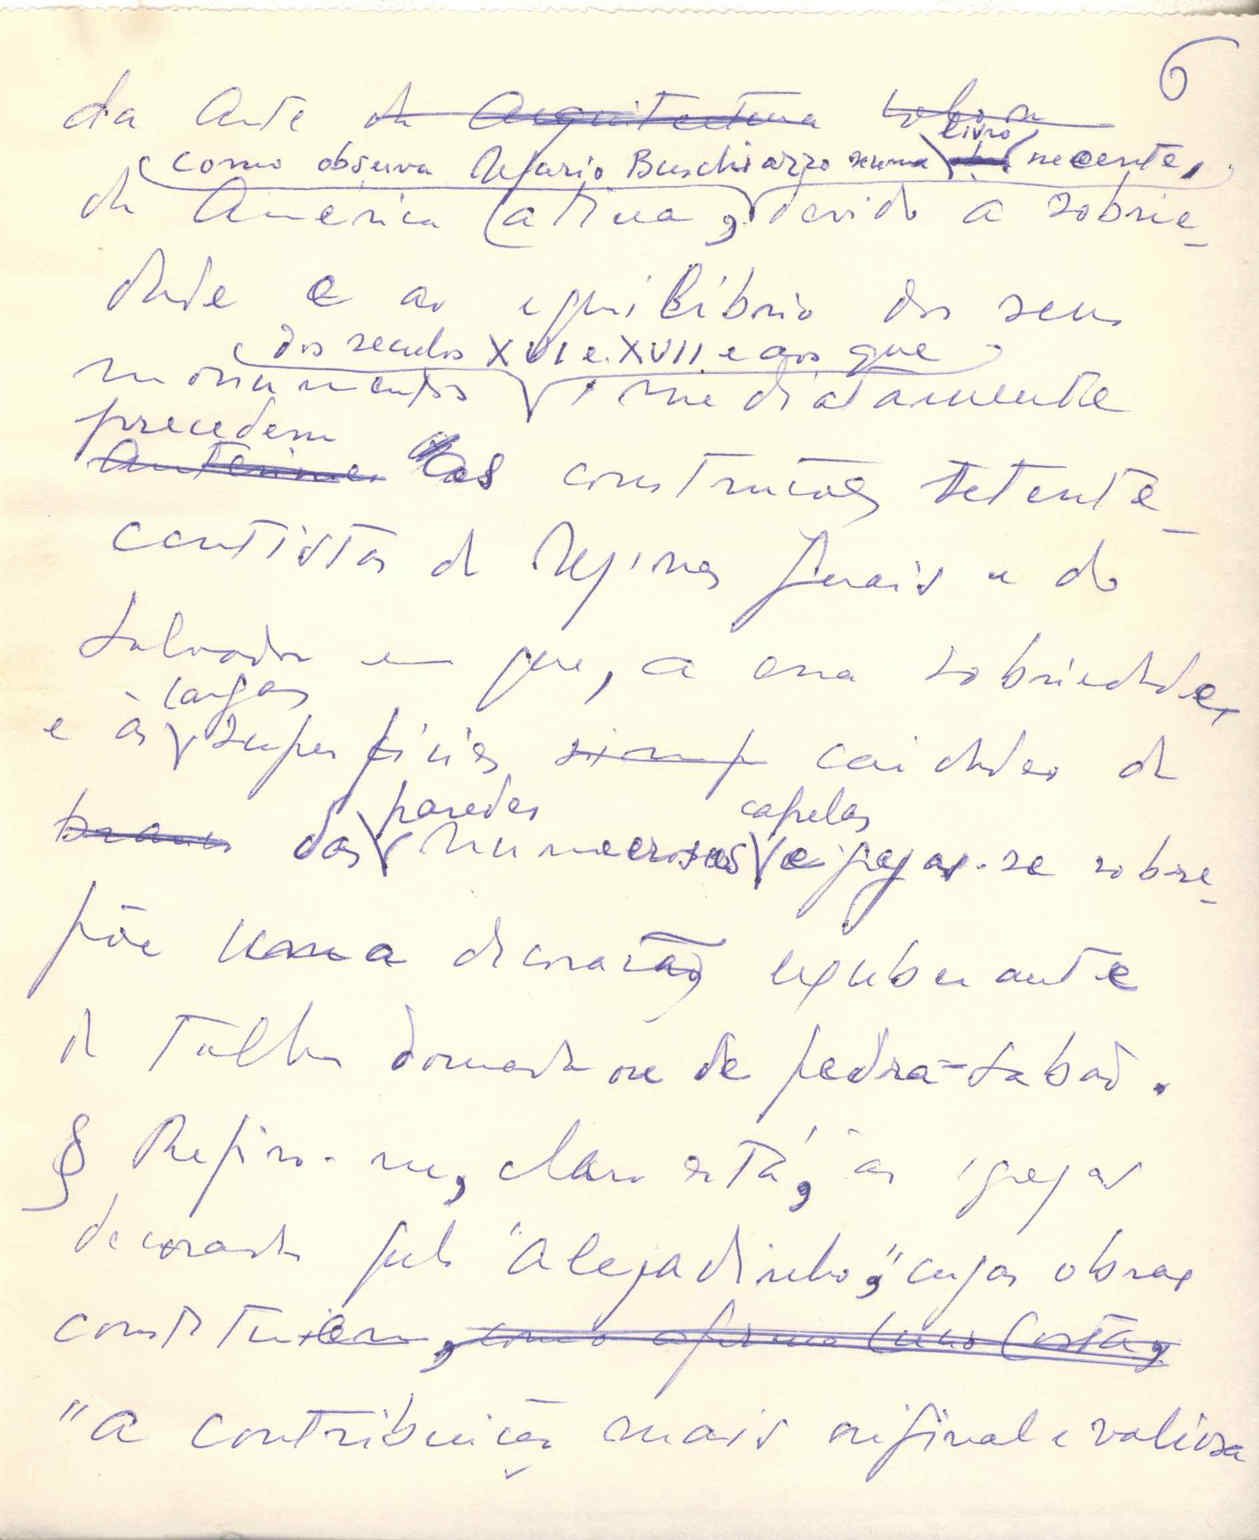 6
da Arte da Arquitectura
livro
como observa Mario Buschiazzo numa recente,
da America Latina, devido à sobrie-
dade e ao equilíbrio dos seus
dos seculos XVI e XVII e aos que
monumentos imediatamente
precedem
as construções setente-
centistas de Minas Gerais e do
Salvador em que, a essa sobriedade,
largas
e às superficies simp caiadas de
paredes capelas
branco das numerosas e igrejas-se sobre-
põe uma decoração exuberante
de talha dourada ou de pedra-sabão.
§ Refiro-me, claro está, às igrejas
decoradas pelo "Alejadinho," cujas obras
constituiem, como afirma Lucio Costa,
"a contribuição mais original e valiosa